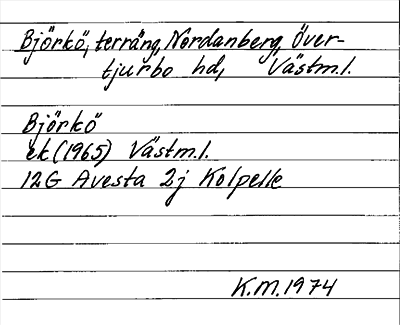 Björkö, terräng, Nordanberg, Över-
tjurbo hd, Västm.l.
Björkö
ek (1965) Västm.l.
12G Avesta 2j Kolpelle
K.M. 1974